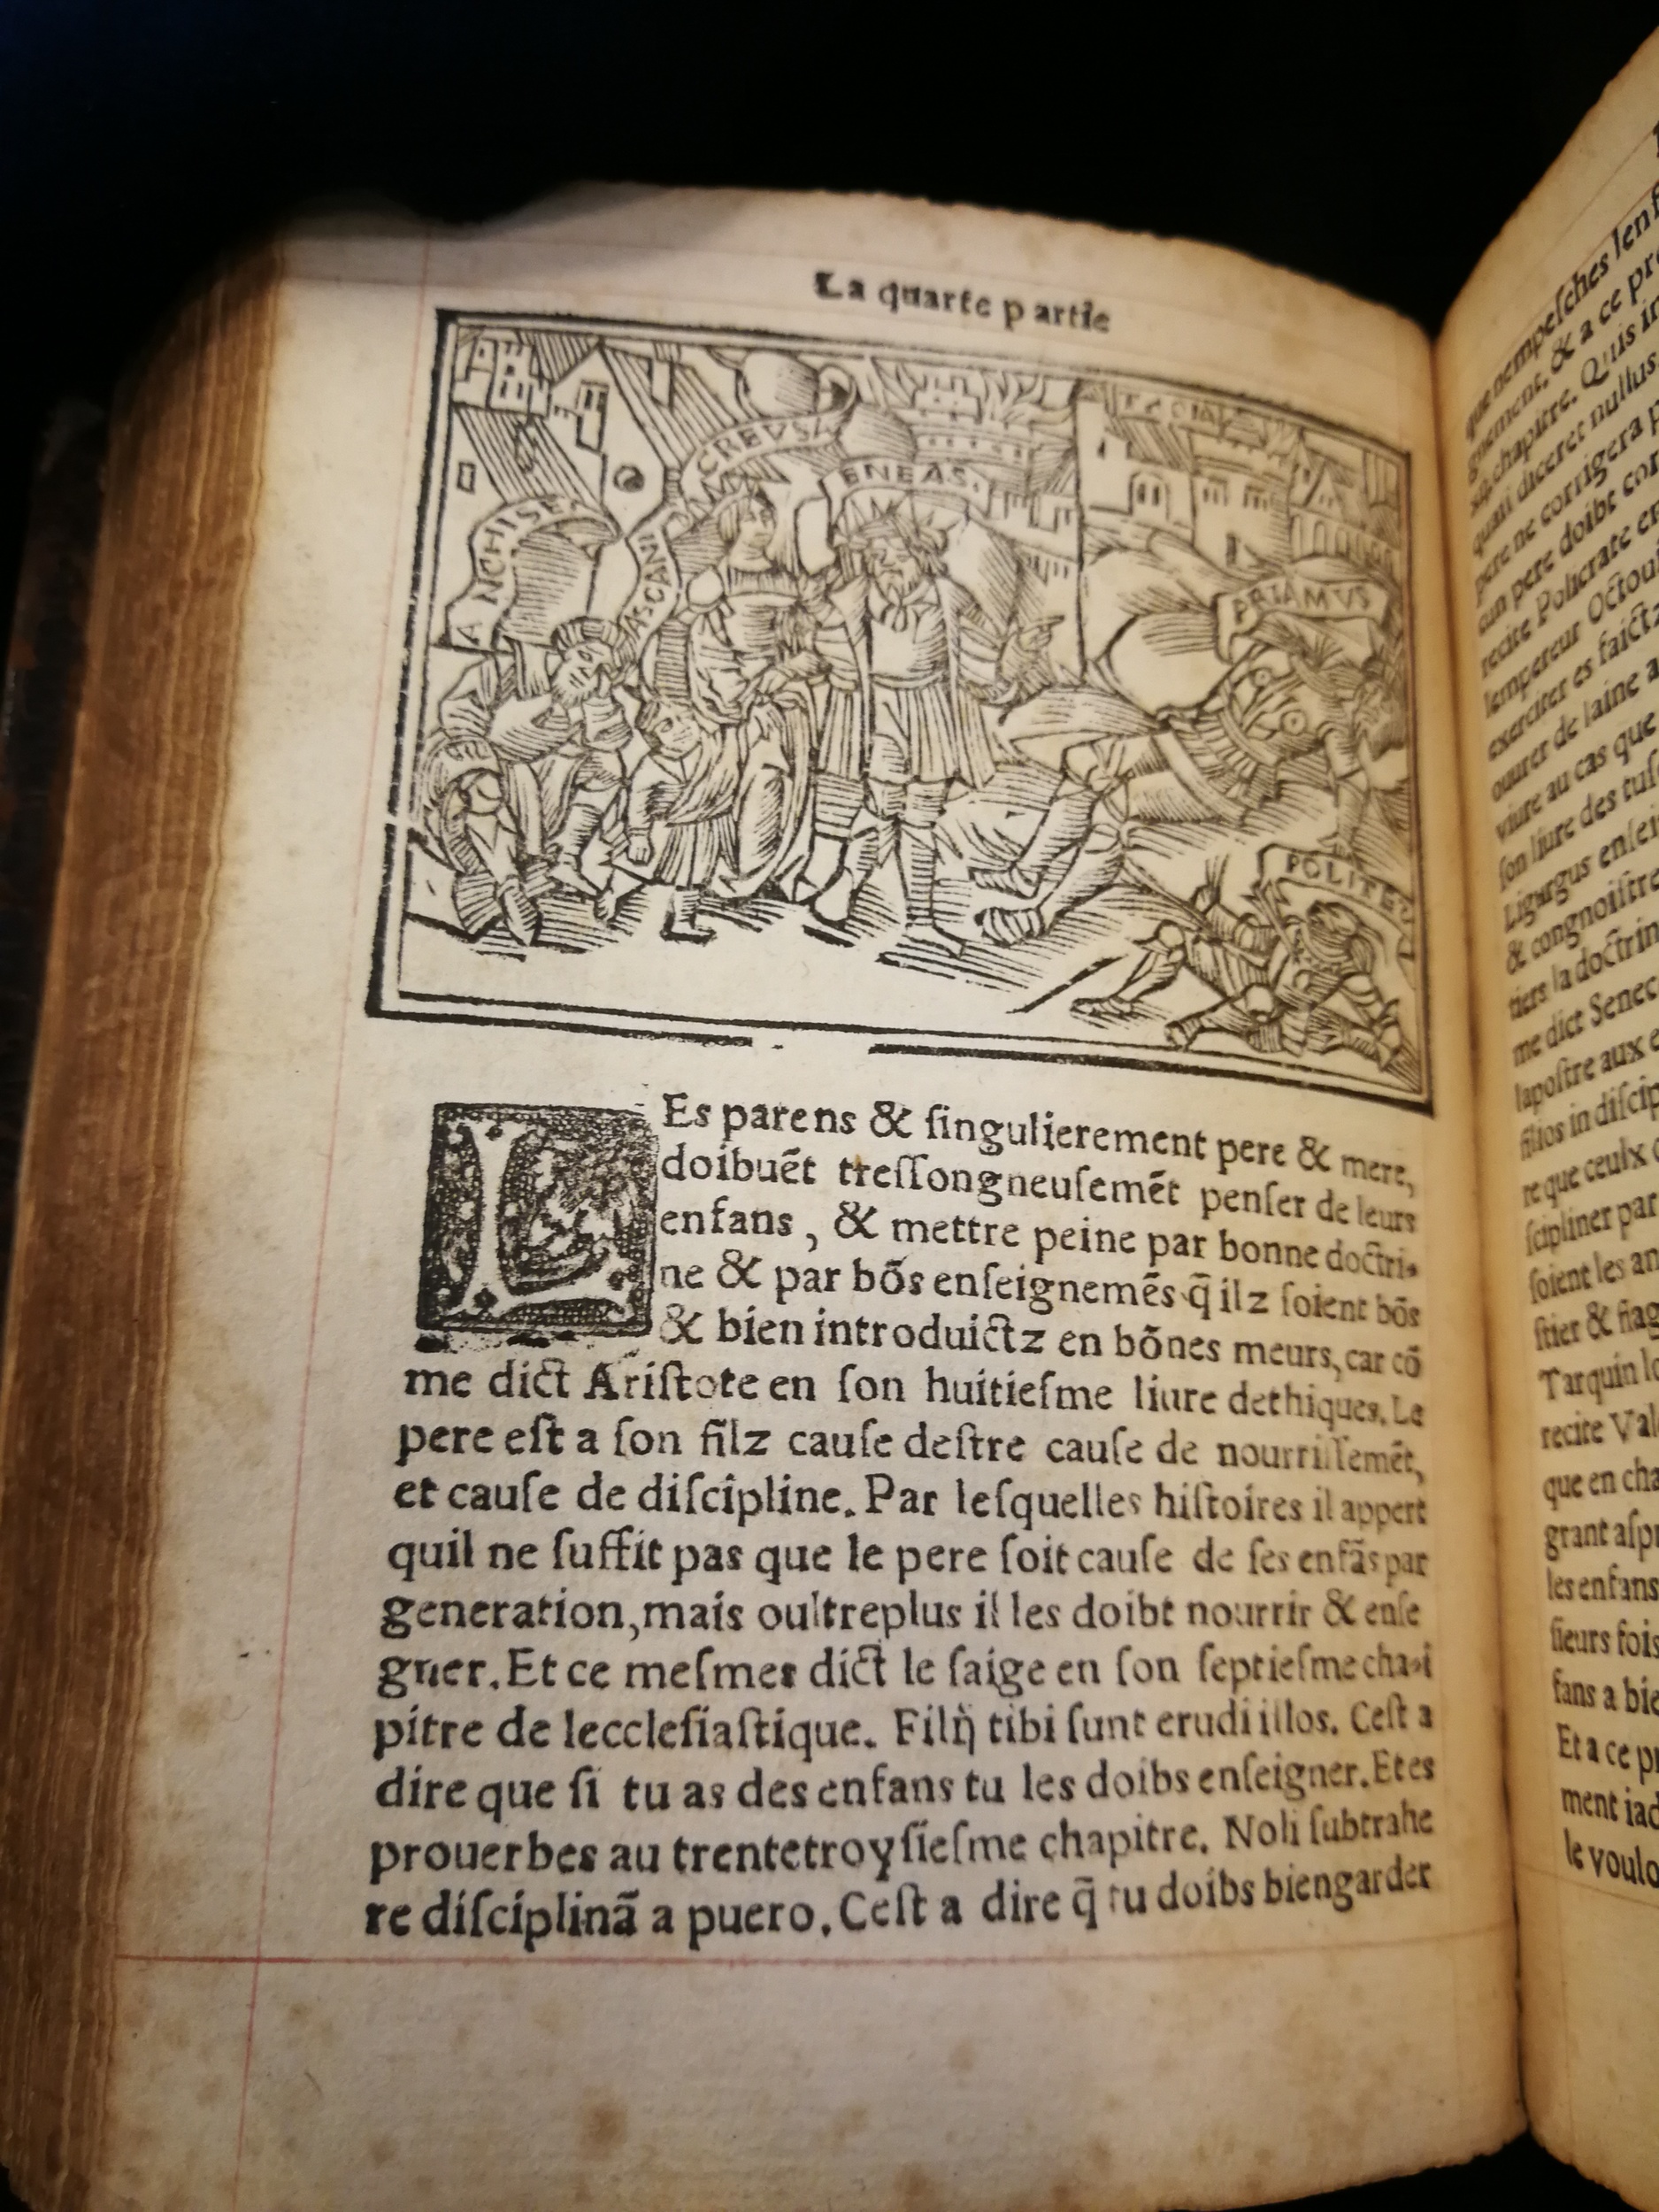 La quarte p artie
CREVSA
ENEAS.
ANCHISES
ASCANI
PRIAMVS
POLITES
LEs parens & ſingulierement pere & mere,
doibuẽt treſſongneuſemẽt penſer de leurs
enfans , & mettre peine par bonne doctri-
ne & par bõs enſeignemẽs q̃ ilz ſoient bõs
& bien introduictz en bõnes meurs, car cõ
me dict Ariſtote en ſon huitieſme liure dethiques. Le
pere eſt a ſon filz cauſe deſtre cauſe de nourriſſemẽt,
et cauſe de diſcipline. Par leſquelles hiſtoires il appert
quil ne ſuffit pas que le pere ſoit cauſe de ſes enfãs par
generation, mais oultreplus il les doibt nourrir & enſe
gner. Et ce meſmes dict le ſaige en ſon ſeptieſme cha-i
pitre de leccleſiaſtique. Filij tibi ſunt erudi illos. Ceſt a
dire que ſi tu as des enfans tu les doibs enſeigner. Et es
prouerbes au trentetroyſieſme chapitre. Noli ſubtrahe
re diſciplinã a puero. Ceſt a dire q̃ tu doibs biengarder
que nempeſches lenf
gnement. & a ce pr
chapitre. Quis in
quali diceret nullus
pere ne corrigera p
cun pere doibt cor
recite Policrate en
lempereur Octoui
exerciter es faictz
ouurer de laine a
viure au cas que
ſon liure des tuſ
Ligurgus enſei
& congnoiſtre
tiers la doctrin
me dict Senec
lapoſtre aux e
filios in diſcip
re que ceulx
ſcipliner par
ſoient les an
ſtier & flag
Tarquin lo
recite Val
que en cha
grant aſp
les enfans
ſieurs fois
fans a bie
Et a ce p
ment iad
le voulo